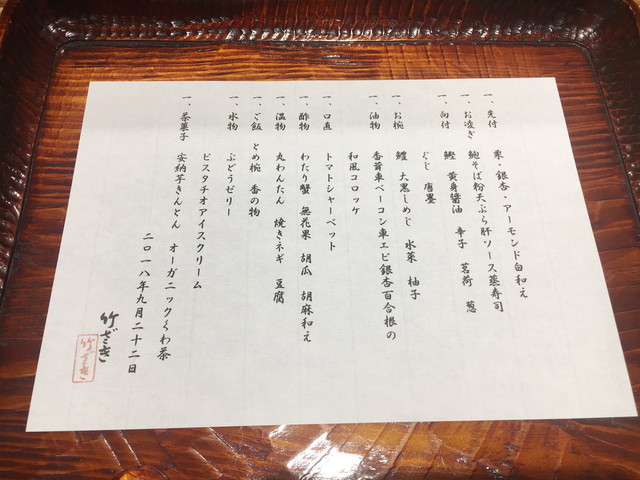 一、先付　栗・銀杏・アーモンド白和え
一、お凌ぎ　鮑そば粉天ぷら肝ソース蒸寿司
一、向付　鰹　黄身醤油　辛子　茗荷　葱
ぐじ　唐墨
一、お椀　鱧　大黒しめじ　水菜　柚子
一、油物　香茸車ベーコン車エビ銀杏百合根の
和風コロッケ
一、口直　トマトシャーベット
一、酢物　わたり蟹　無花果　胡瓜　胡麻和え
一、温物　丸わんたん　焼きネギ　豆腐
一、ご飯　とめ椀　香の物
一、水物　ぶどうゼリー
ピスタチオアイスクリーム
一、茶菓子　安納芋きんとん　オーガニックくわ茶
二〇一八年九月二十二日
竹ざき
竹ざき